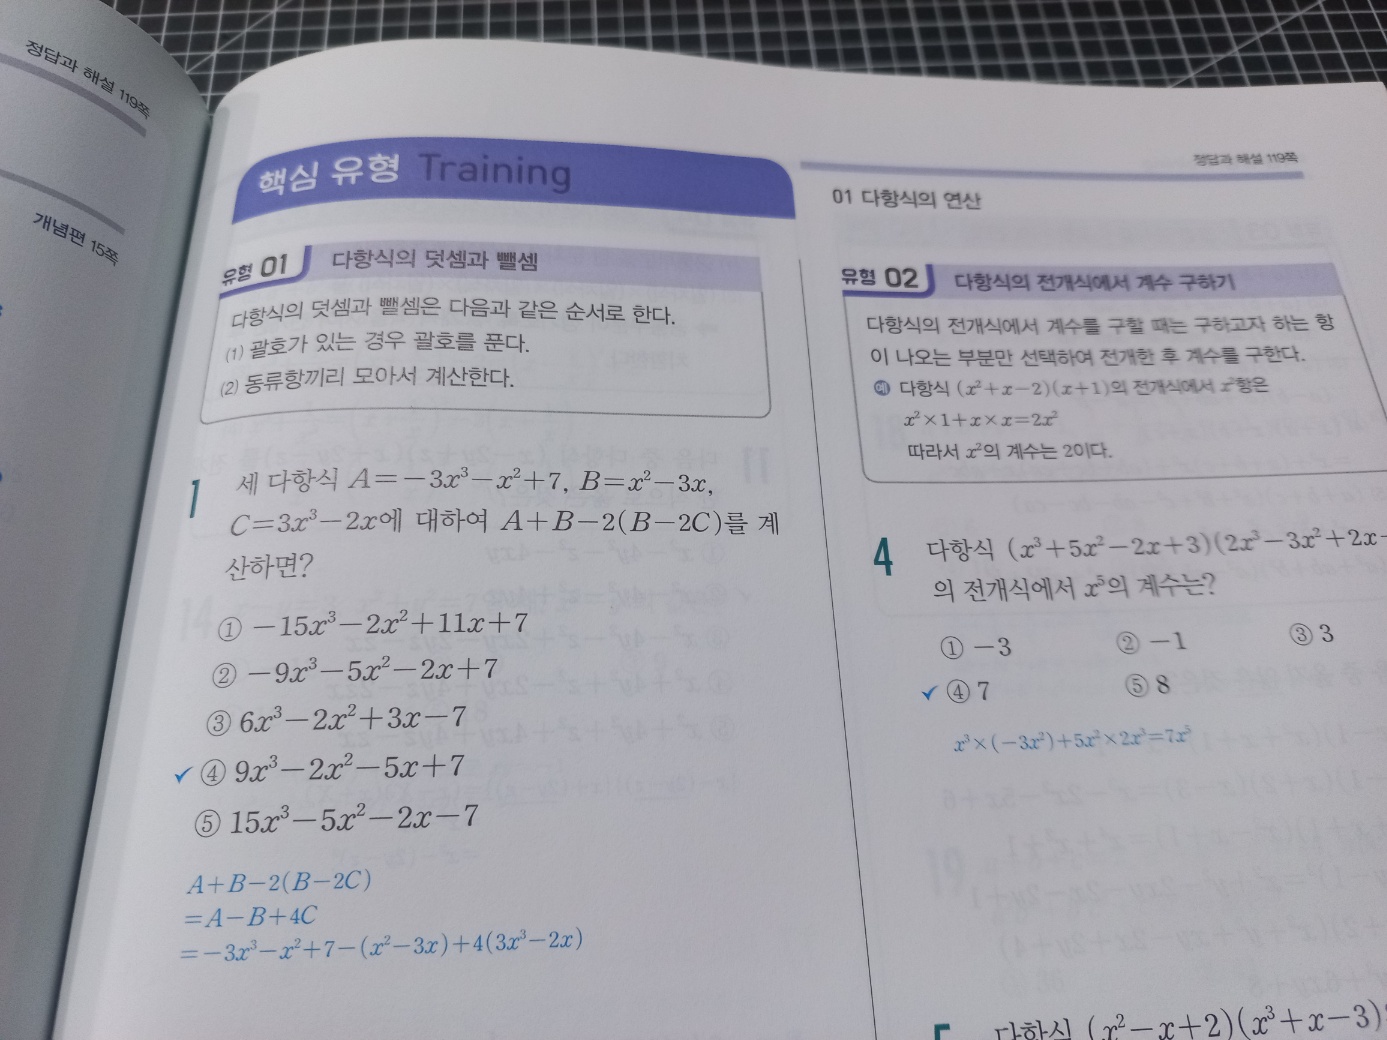 정답과 해설 119쪽
개념편 15쪽
핵심 유형 Training
유형 01 다항식의 덧셈과 뺄셈
다항식의 덧셈과 뺄셈은 다음과 같은 순서로 한다.
(1) 괄호가 있는 경우 괄호를 푼다.
(2) 동류항끼리 모아서 계산한다.
1 세 다항식 A=−3x³−x²+7, B=x²−3x,
C=3x³−2x에 대하여 A+B−2(B−2C)를 계
산하면?
① −15x³−2x²+11x+7
② −9x³−5x²−2x+7
③ 6x³−2x²+3x−7
✓ ④ 9x³−2x²−5x+7
⑤ 15x³−5x²−2x−7
A+B−2(B−2C)
=A−B+4C
=−3x³−x²+7−(x²−3x)+4(3x³−2x)
정답과 해설 119쪽
01 다항식의 연산
유형 02 다항식의 전개식에서 계수 구하기
다항식의 전개식에서 계수를 구할 때는 구하고자 하는 항
이 나오는 부분만 선택하여 전개한 후 계수를 구한다.
예 다항식 (x²+x−2)(x+1)의 전개식에서 x²항은
x²×1+x×x=2x²
따라서 x²의 계수는 2이다.
4 다항식 (x³+5x²−2x+3)(2x³−3x²+2x−
의 전개식에서 x⁵의 계수는?
① −3 ② −1 ③ 3
✓ ④ 7 ⑤ 8
x³×(−3x²)+5x²×2x³=7x⁵
다항식 (x²−x+2)(x³+x−3)